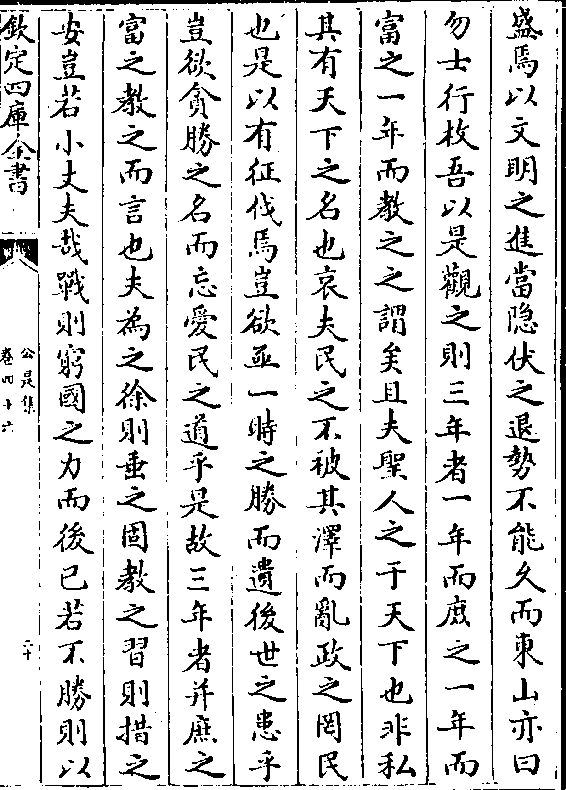 盛焉以文明之進當隐伏之退勢不能久而東山亦曰
勿士行枚吾以是觀之則三年者一年而庶之一年而
富之一年而教之之謂矣且夫聖人之于天下也非私
其有天下之名也哀夫民之不被其澤而亂政之罔民
也是以有征伐焉豈欲亟一時之勝而遺後世之患乎
豈欲貪勝之名而忘愛民之道乎是故三年者并庶之
富之教之而言也夫為之徐則垂之固教之習則措之
安豈若小丈夫哉戰則窮國之力而後已若不勝則以
欽定四庫全書
公是集
卷四十六
二十